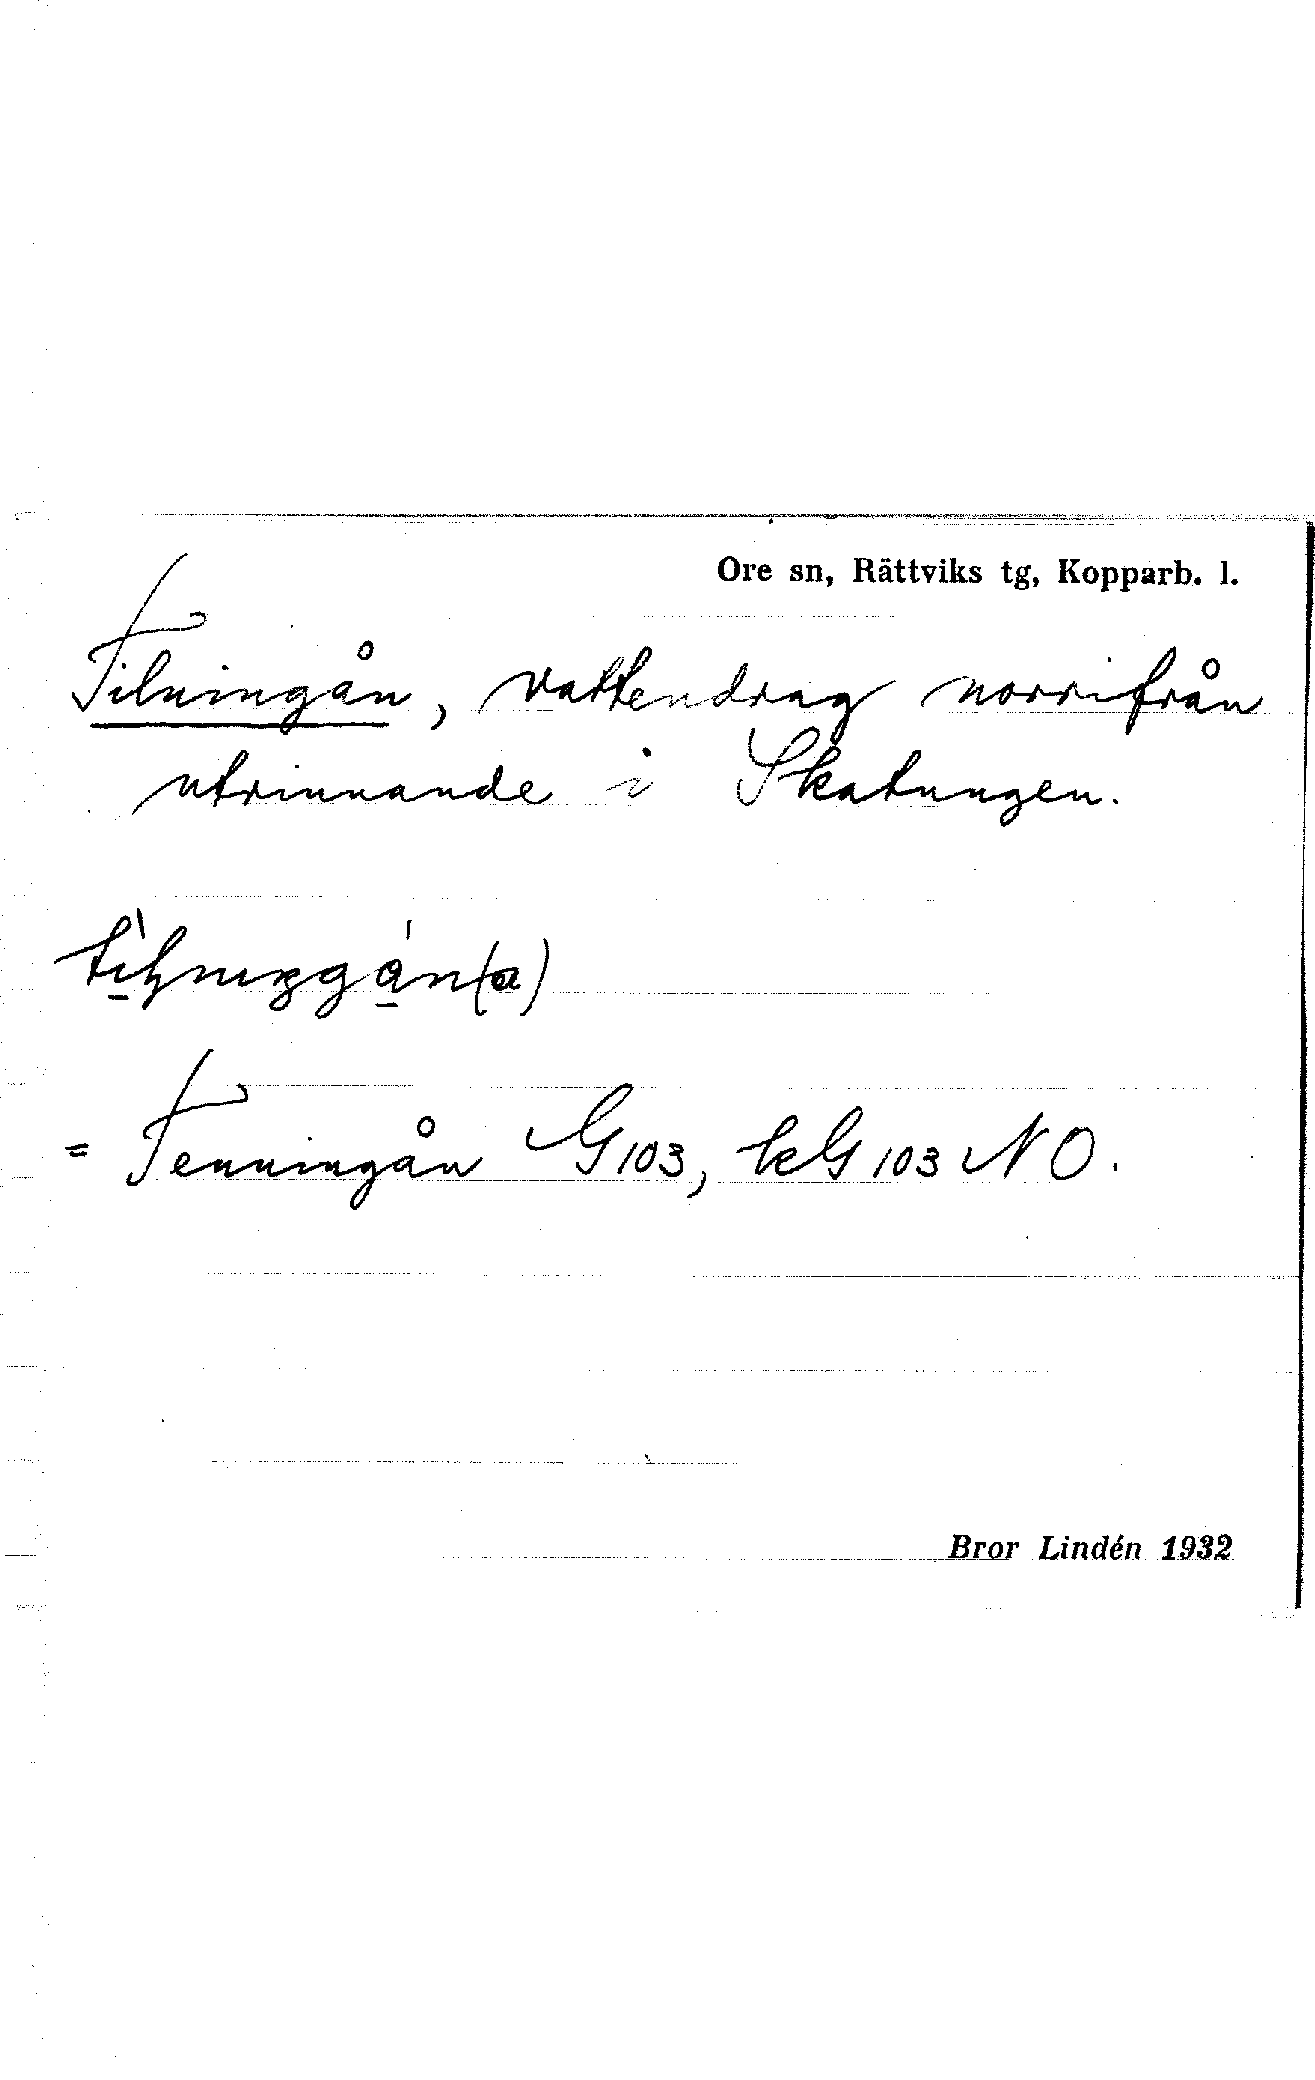 Ore sn, Rättviks tg, Kopparb. l.
Tilningån, vattendrag norrifrån
utrinnande i Skatungen.
= Tenningån G103, kG 103 NO.
Bror Lindén 1932